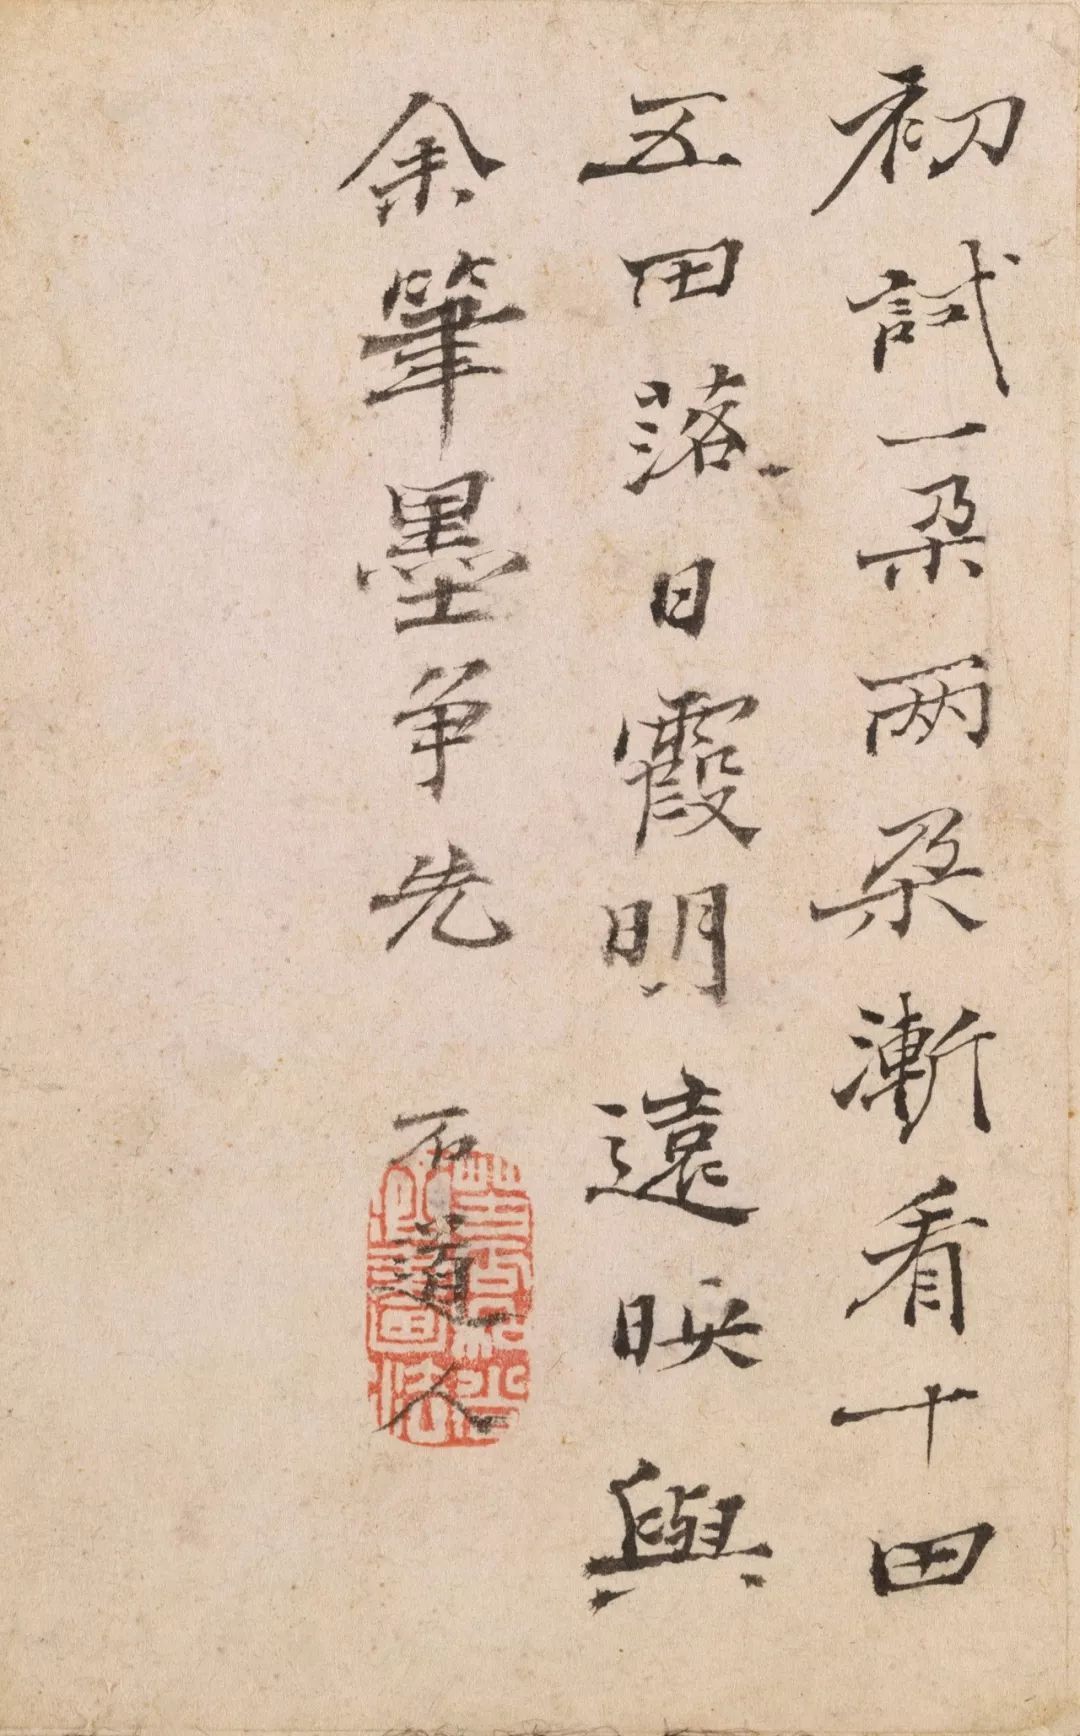 初試一朵兩朵漸看十田
五田落日霞明遠映與
余筆墨争先
石道人